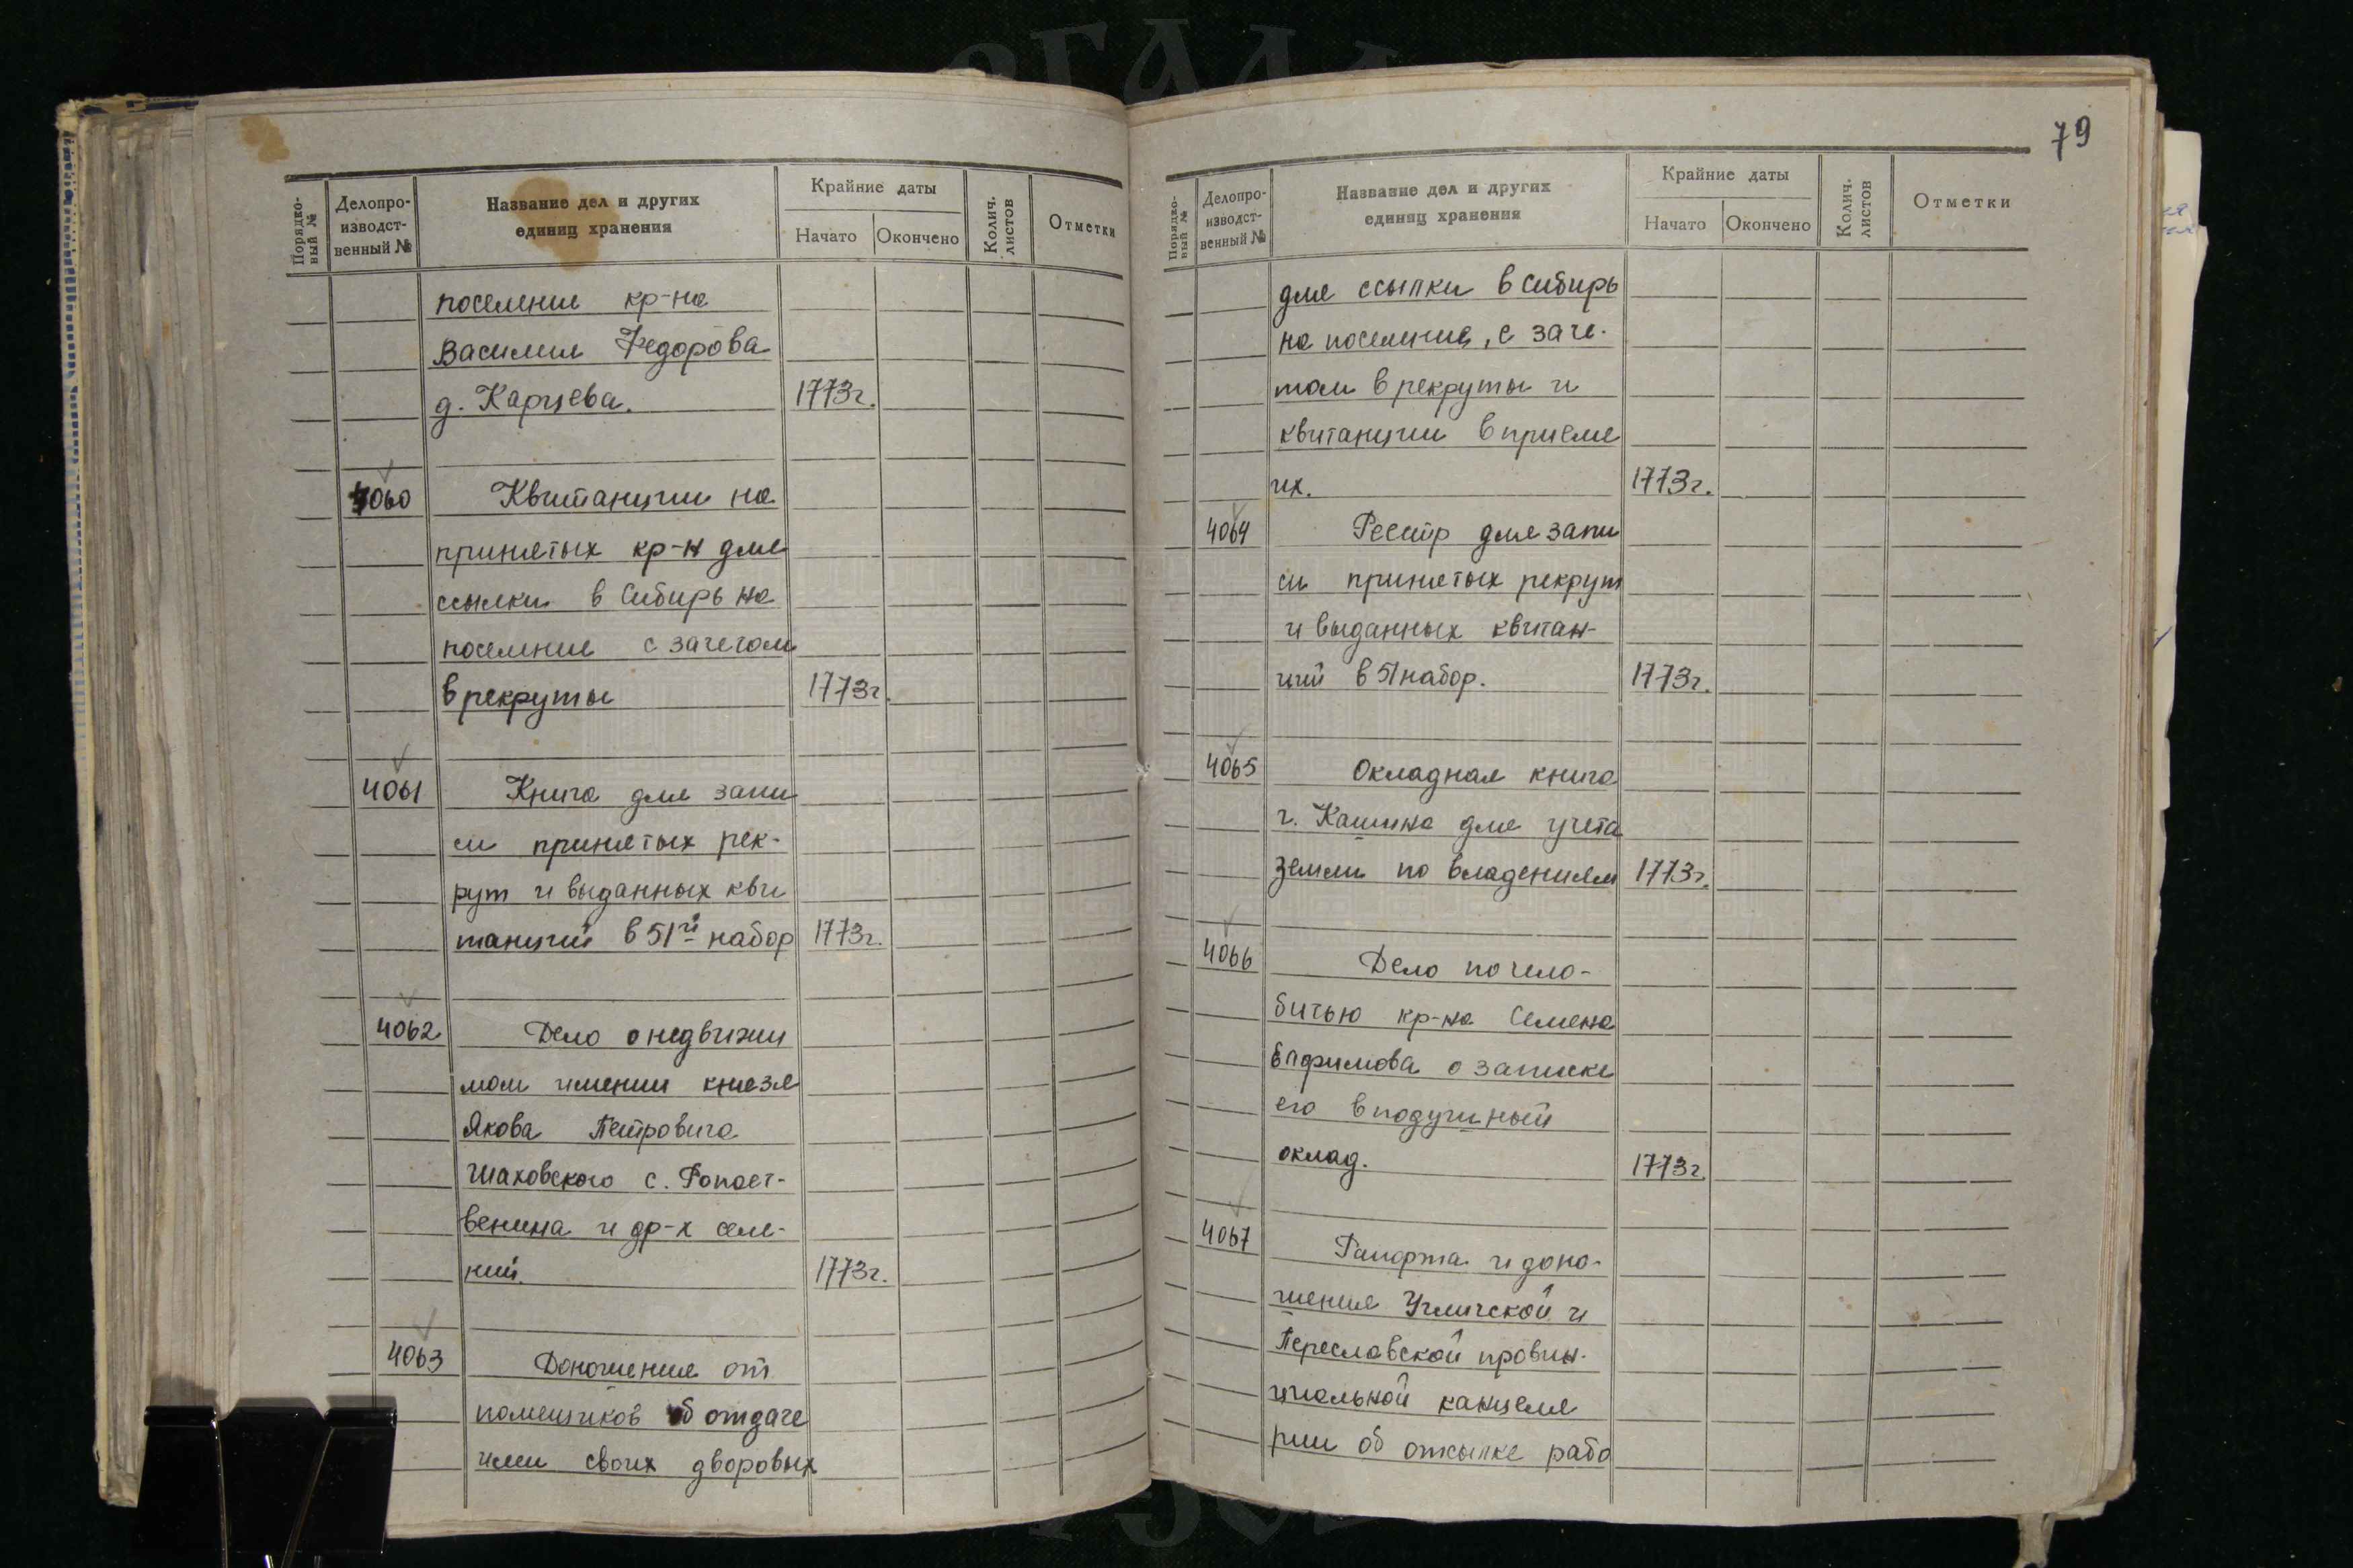 79
Порядко-
вый №
Делопро-
изводст-
венный №
Название дел и других
единиц хранения
Крайние даты
Начато
Окончено
Колич.
листов
Отметки
поселение кр-на
Василия Федорова
д. Карцева. 1773г.
4060 Квитанции на
принятых кр-н для
ссылки в Сибирь на
поселение с зачетом
в рекруты 1773г.
4061 Книга для запи
си принятых рек-
рут и выданных кви
танций в 51й набор 1773г.
4062 Дело о недвижи
мом имении князя
Якова Петровича
Шаховского с.
венина и др-х селе-
ний. 1773г.
4063 Доношения от
помещиков об отдаче
ими своих дворовых
Порядко-
вый №
Делопро-
изводст-
венный №
Название дел и других
единиц хранения
Крайние даты
Начато
Окончено
Колич.
листов
Отметки
для ссылки в Сибирь
на поселение, с заче-
том в рекруты и
квитанции в приеме
их. 1773г.
4064 Реестр для запи
си принятых рекрут
и выданных квитан-
ций в 51 набор. 1773г.
4065 Окладная книга
г. Кашина для учета
земли по владениям 1773г.
4066 Дело по чело-
битью кр-на Семена
о записке
его в подушный
оклад. 1773г.
4067 Рапорта и доно-
шения Угличской и
Переславской провин-
циальной канцеля
рии об отсылке рабо